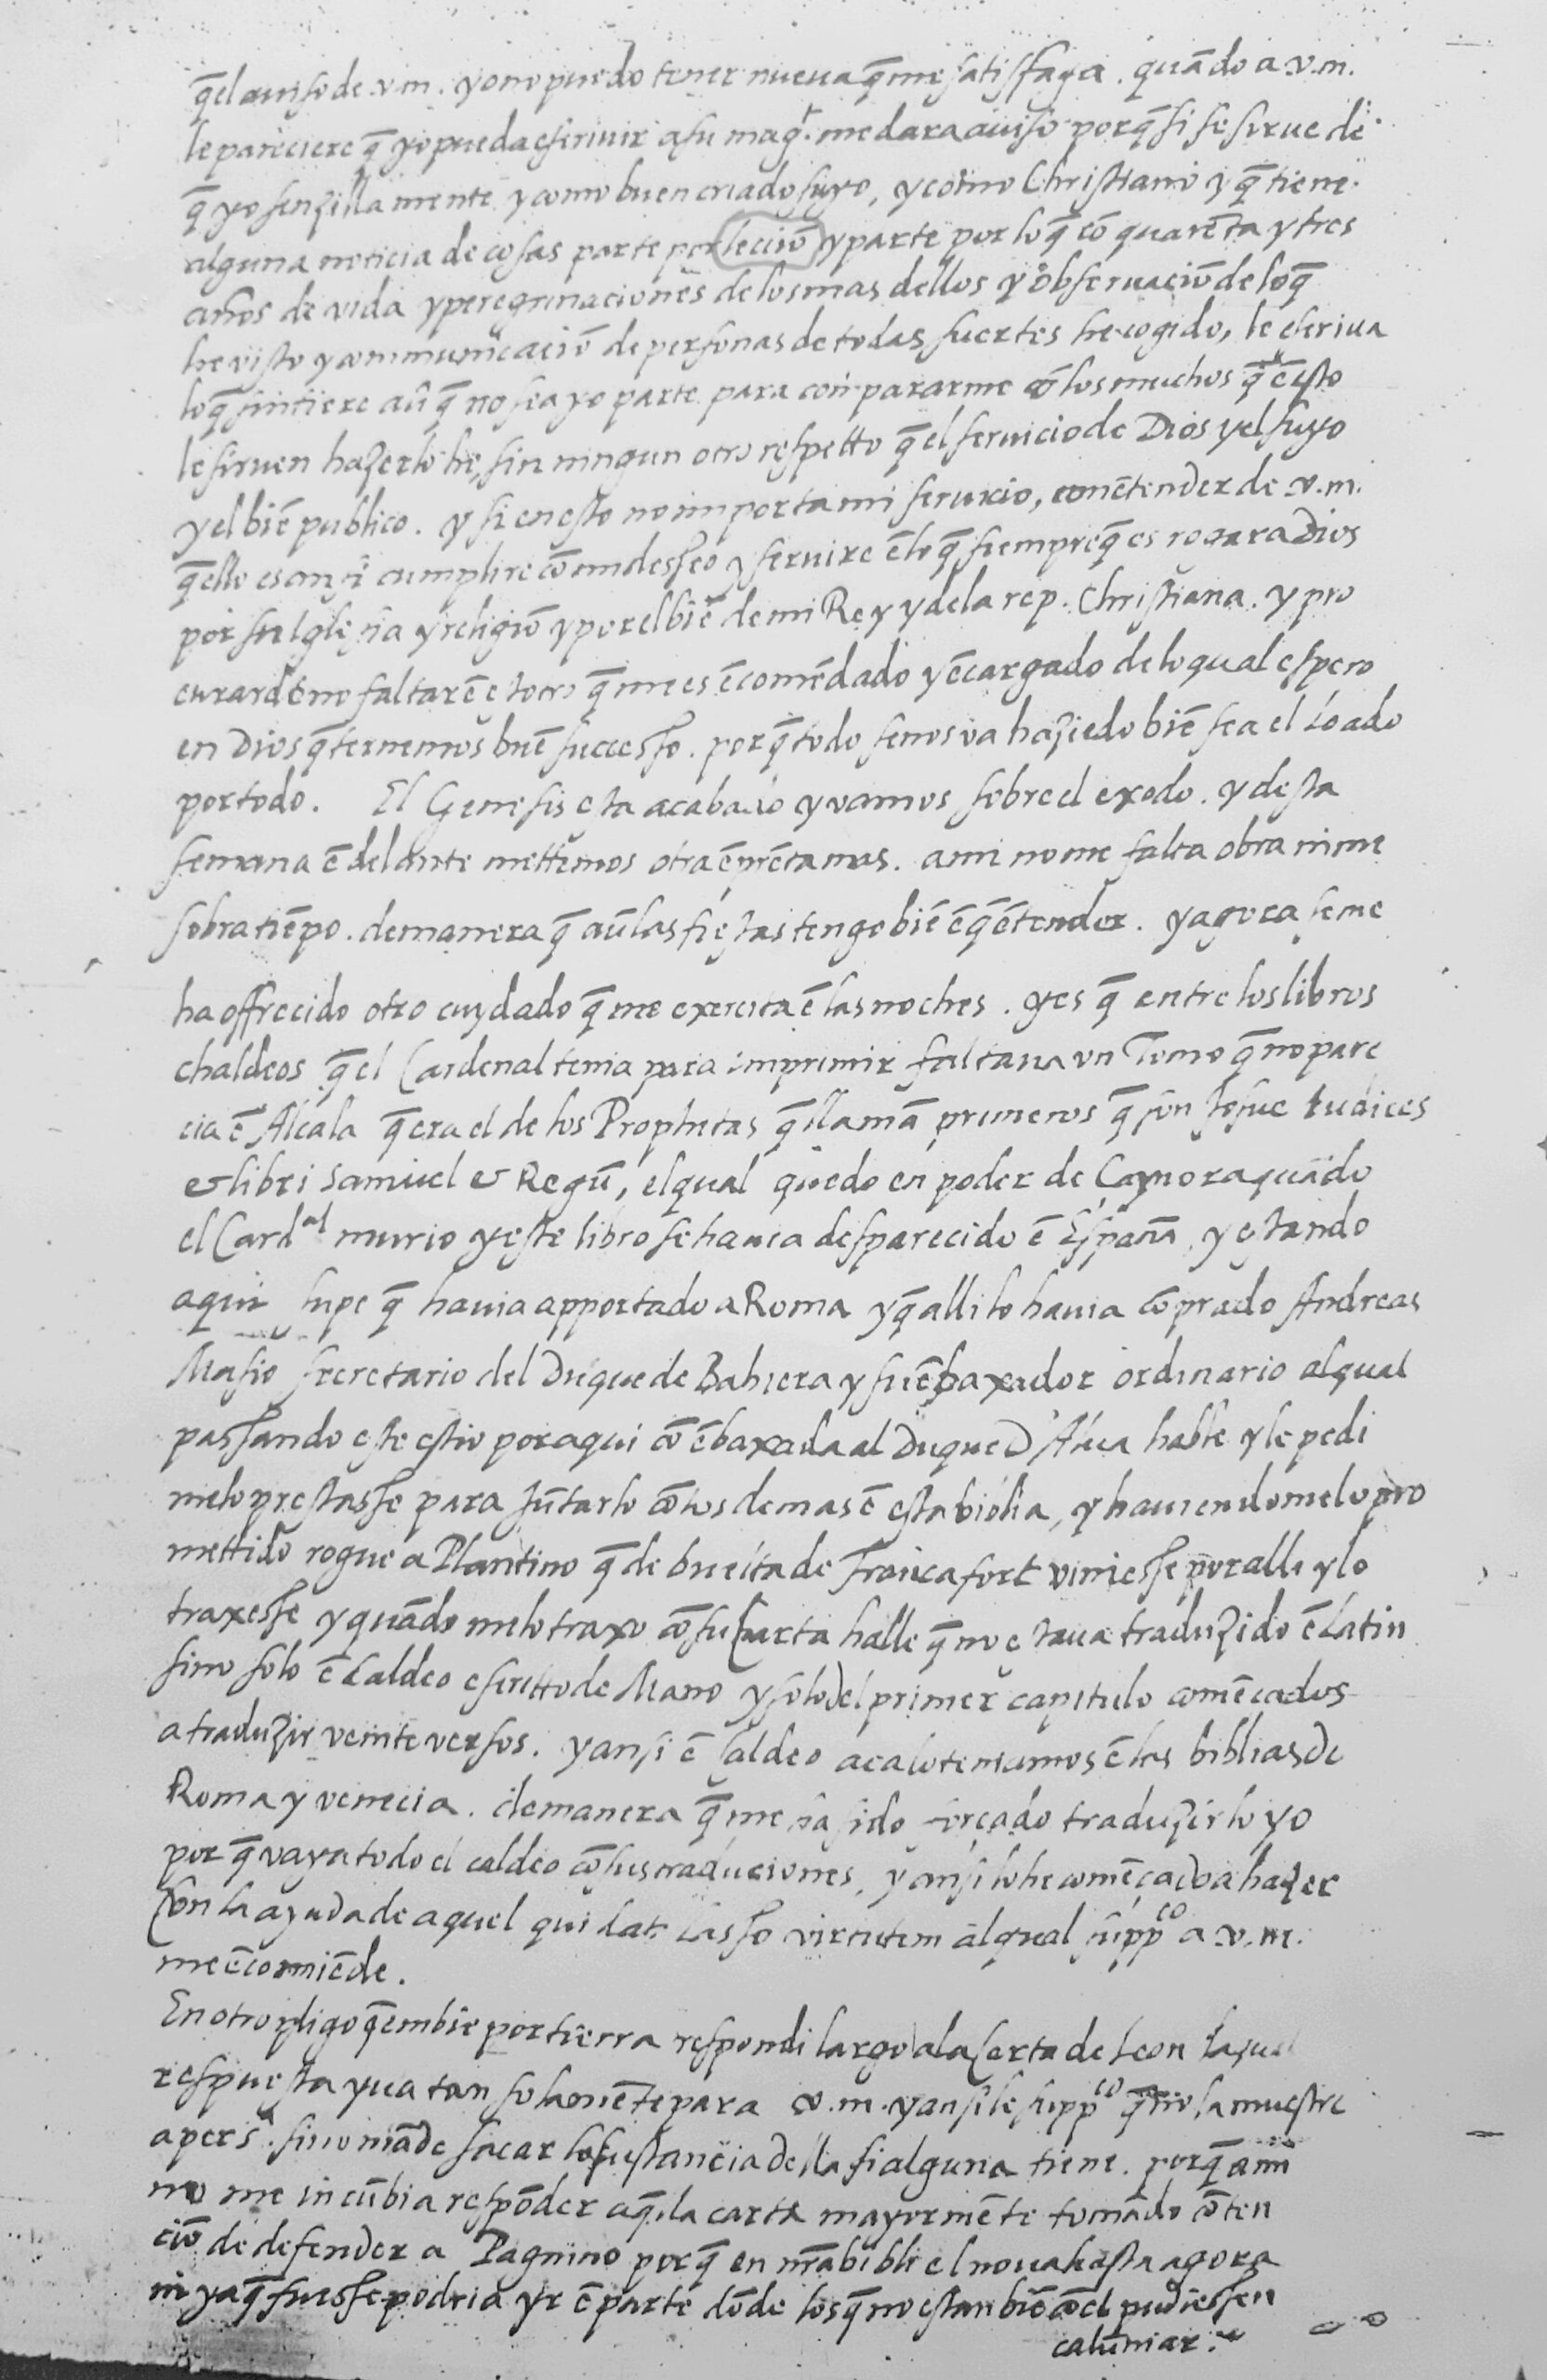 q̃ el auiso de .v.m. yo no puedo tener nueua q̃ me satisfaga . quãdo a v.m.
le pareciere q̃ yo pueda escriuir a su mag.t me dara auiso porq̃ si se sirue de
q̃ yo senzillamente y como buen criado suyo, y como Christiano y q̃ tiene
alguna noticia de cosas parte por leciõ y parte por lo q̃ cõ quarẽta y tres
años de vida y peregrinaciones de los mas dellos y obseruaciõ de lo q̃
he visto y communicaciõ de personas de todas suertes he cogido, le escriua
lo q̃ sintiere aũ q̃ no sea yo parte para compararme cõ los muchos q̃ ẽ esto
le siruen hazerlo he, sin ningun otro respetto q̃ el seruicio de Dios y el suyo
y el biẽ publico . y si en esto no importa mi seruicio, con ẽtender de v.m.
q̃ esto es ansi cumplire cõ mi desseo y seruire ẽ lo q̃ siempre q̃ es rogar a Dios
por su Iglesia y religiõ y por el biẽ de mi Rey y de la rep. Christiana . y pro
curarde no faltar ẽ estotro q̃ me es ẽcomẽdado y ẽcargado de lo qual espero
en Dios q̃ ternemos buẽ successo . porq̃ todo se nos va haziẽdo biẽ sea el loado
por todo . El Genesis esta acabado y vamos sobre el exodo . y desta
semana ẽ delante mettemos otra ẽprẽta mas . a mi no me falta obra ni me
sobra tiẽpo . de manera q̃ aũ las fiestas tengo biẽ ẽ q̃ ẽtender . y agora se me
ha offrecido otro cuydado q̃ me exercita ẽ las noches . y es q̃ entre los libros
chaldeos q̃ el Cardenal tenia para imprimir faltaua vn Tomo q̃ no pare
cia ẽ Alcala q̃ era el de los Prophetas q̃ llamã primeros q̃ son Iosue Iudices
& libri Samuel & Regũ, el qual quedo en poder de Çamora quãdo
el Card.al murio y este libro se hauia desparecido ẽ España, y estando
aqui supe q̃ hauia apportado a Roma y q̃ alli lo hauia cõprado Andreas
Masio secretario del Duque de Bahiera y su ẽbaxador ordinario al qual
passando este estio por aqui cõ ẽbaxada al Duque D Alua hable y le pedi
me lo prestasse para jũtarlo cõ los demas ẽ esta biblia, y hauiendomelo pro
mettido rogue a Plantino q̃ de buelta de Francafort viniesse por alli y lo
traxesse y quãdo me lo traxo cõ su Carta halle q̃ no estaua traduzido ẽ Latin
sino solo ẽ Caldeo escritto de Mano y solo del primer capitulo comẽcados
a traduzir veinte versos . y ansi ẽ Caldeo aca lo teniamos ẽ las biblias de
Roma y venecia . de manera q̃ me ha sido forçado traduzirlo yo
por q̃ vaya todo el caldeo cõ sus traduciones, y ansi lo he comẽçado a hazer
Con la ayuda de aquel qui dat lasso virtutem al qual supp.co a v.m.
me ẽcomiẽde .
En otro pligo q̃ embie por tierra respondi largo a la Carta de Leon la qual
respuesta yua tan solamẽte para v.m. y ansi le supp.co q̃ no la muestre
a pers.a sino mãde sacar la sustancia della si alguna tiene . porq̃ a mi
no me incũbia respõder aq̃lla carta mayormẽte tomãdo cõten
ciõ de defender a Pagnino porq̃ en nr̃a biblia el no va hasta agora
ni ya q̃ fuesse podria yr ẽ parte dõde los q̃ no estan biẽ cõ el pudiessen
calũniar .